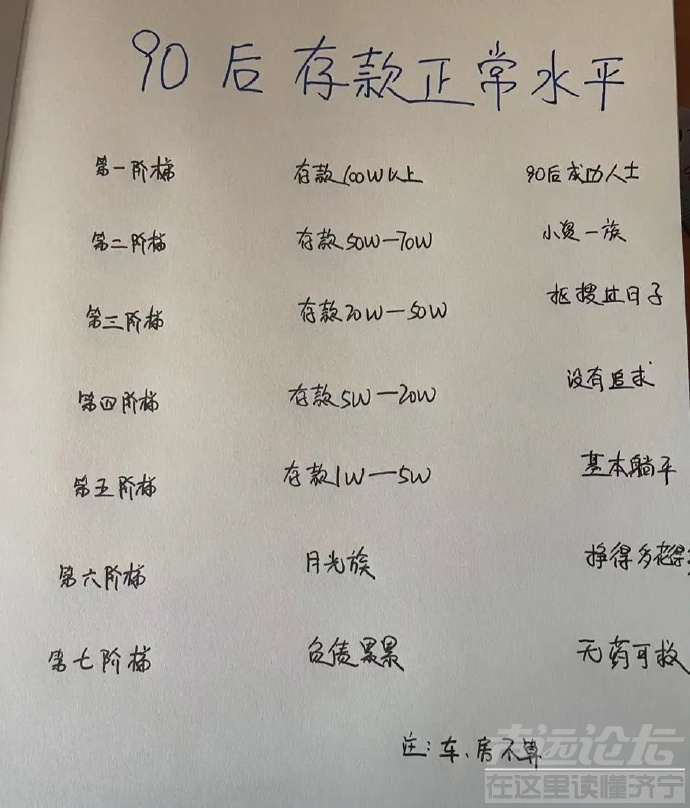 90后存款正常水平
第一阶梯 存款100W以上 90后成功人士
第二阶梯 存款50W—70W 小资一族
第三阶梯 存款20W—50W 抠搜过日子
第四阶梯 存款5W—20W 没有追求
第五阶梯 存款1W—5W 基本躺平
第六阶梯 月光族 挣得多花得多
第七阶梯 负债累累 无药可救
注:车、房不算
在这里读懂济宁